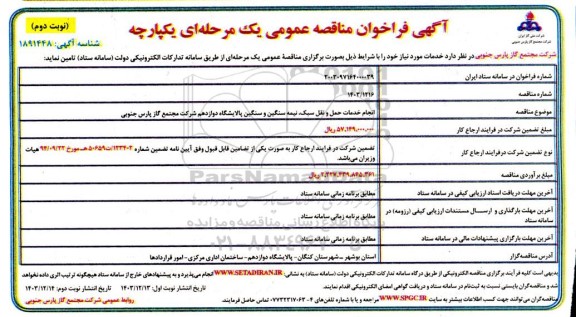 آگهی فراخوان مناقصه عمومی یک مرحله‌ای یکپارچه
(نوبت دوم)
شناسه آگهی: ۱۸۹۱۴۴۸
شرکت مجتمع گاز پارس جنوبی در نظر دارد خدمات مورد نیاز خود را با شرایط ذیل بصورت برگزاری مناقصه عمومی یک مرحله‌ای از طریق سامانه تدارکات الکترونیکی دولت (سامانه ستاد) تامین نماید:
شماره فراخوان در سامانه ستاد ایران
شماره مناقصه ۱۴۰۳/۱۳۱۶
موضوع مناقصه انجام خدمات حمل و نقل سبک، نیمه سنگین و سنگین پالایشگاه دوازدهم شرکت مجتمع گاز پارس جنوبی
مبلغ تضمین شرکت در فرایند ارجاع کار ریال
نوع تضمین شرکت درفرایند ارجاع کار تضمین شرکت در فرایند ارجاع کار به صورت یکی از تضامین قابل قبول وفق آیین نامه تضمین شماره ۱۲۳۴۰۲/ت۵۰۶۵۹هـ مورخ ۹۴/۰۹/۲۲ هیات
وزیران می‌باشد.
مبلغ برآوردی مناقصه ریال
آخرین مهلت دریافت اسناد ارزیابی کیفی در سامانه ستاد مطابق برنامه زمانی سامانه ستاد
آخرین مهلت بارگذاری و ارسال مستندات ارزیابی کیفی (رزومه) در سامانه ستاد مطابق برنامه زمانی سامانه ستاد
آخرین مهلت بارگزاری پیشنهادات مالی در سامانه ستاد مطابق برنامه زمانی سامانه ستاد
آدرس مناقصه‌گزار استان بوشهر – شهرستان کنگان – پالایشگاه دوازدهم – ساختمان اداری مرکزی – امور قراردادها
بدیهی است کلیه فرآیند برگزاری مناقصه الکترونیکی از طریق درگاه سامانه تدارکات الکترونیکی دولت (سامانه ستاد) به نشانی: WWW.SETADIRAN.IR انجام می‌پذیرد و به پیشنهادهای خارج از سامانه ستاد هیچگونه ترتیب اثری داده نخواهد
شد و مناقصه‌گران بایستی نسبت به ثبت‌نام در سامانه ستاد و دریافت گواهی امضای الکترونیکی اقدام نمایند.
مناقصه‌گران می‌توانند جهت کسب اطلاعات بیشتر به سایت WWW.SPGC.IR مراجعه و یا با شماره تلفن ۴-۰۷۷۳۲۳۱۷۰۶۳ تماس حاصل فرمایند.
تاریخ انتشار نوبت اول: ۱۴۰۳/۱۲/۱۳ تاریخ انتشار نوبت دوم: ۱۴۰۳/۱۲/۱۴
روابط عمومی شرکت مجتمع گاز پارس جنوبی